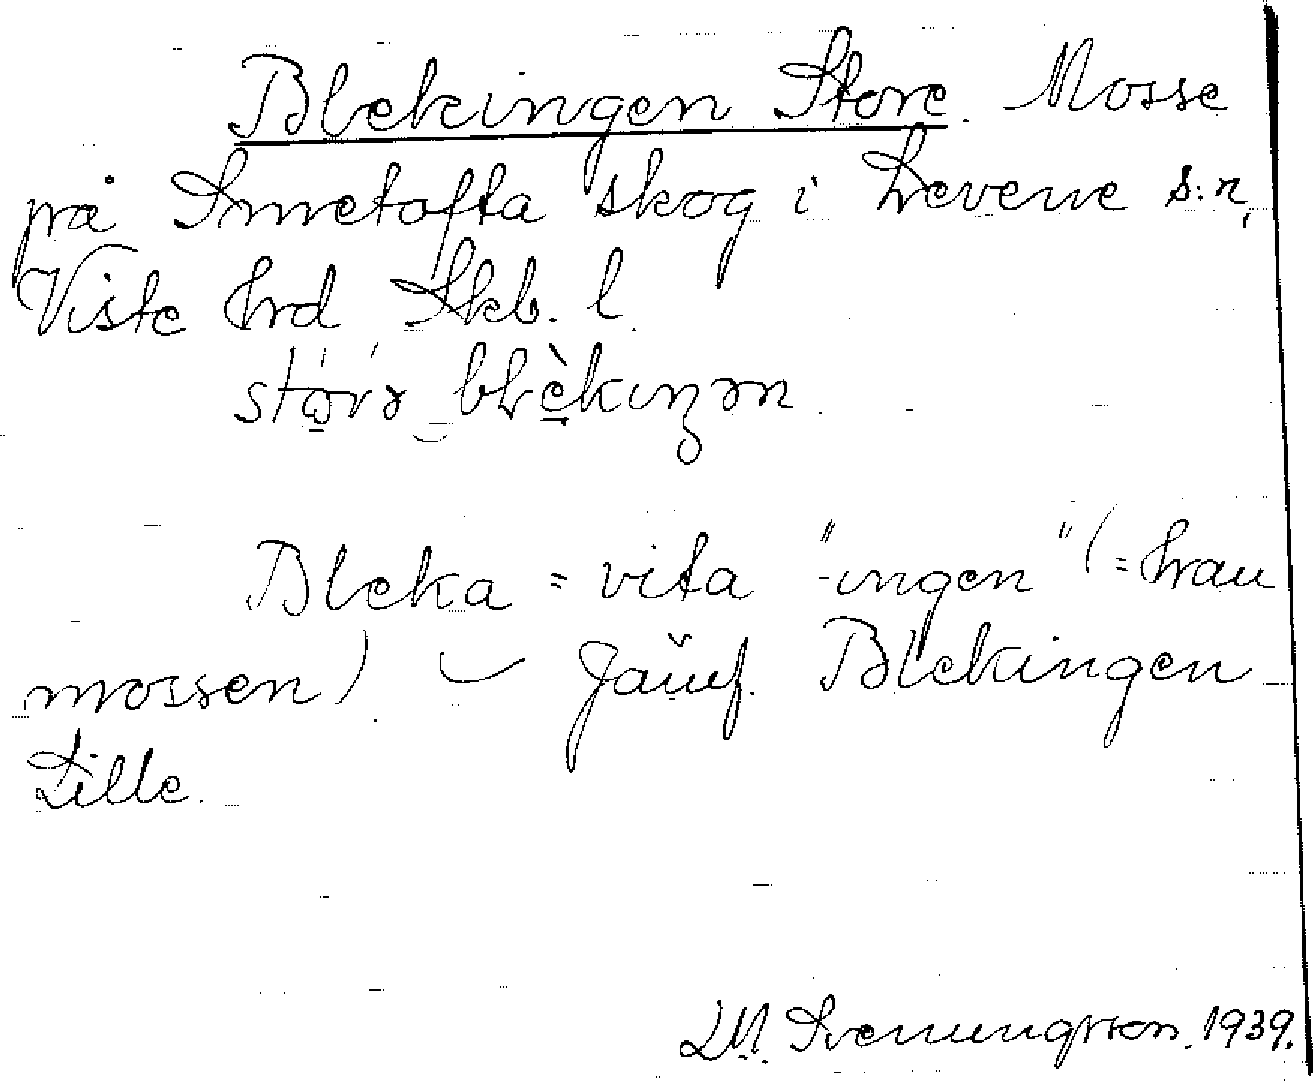 Blekingen Store. Mosse
på Smetofta skog i Levene s:n,
Viste hrd Skb. l.
Bleka = vita "-ingen" (=
mossen) Jämf. Blekingen
Lille.
Svenungsson. 1939.